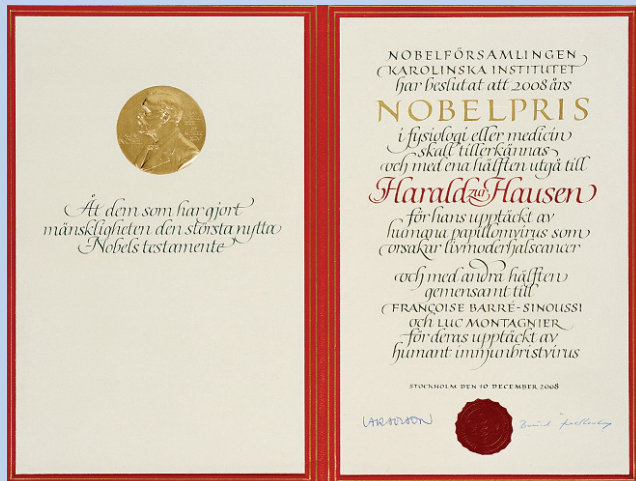 Åt dem som har gjort
mänskligheten den största nytta
Nobels testamente
NOBELFÖRSAMLINGEN
KAROLINSKA INSTITUTET
har beslutat att 2008 års
NOBELPRIS
i fysiologi eller medicin
skall tillerkännas
och med ena hälften utgå till
Harald zur Hausen
för hans upptäckt av
humana papillomvirus som
orsakar livmoderhalscancer
och med andra hälften
gemensamt till
FRANÇOISE BARRÉ-SINOUSSI
och LUC MONTAGNIER
för deras upptäckt av
humant immunbristvirus
STOCKHOLM DEN 10 DECEMBER 2008